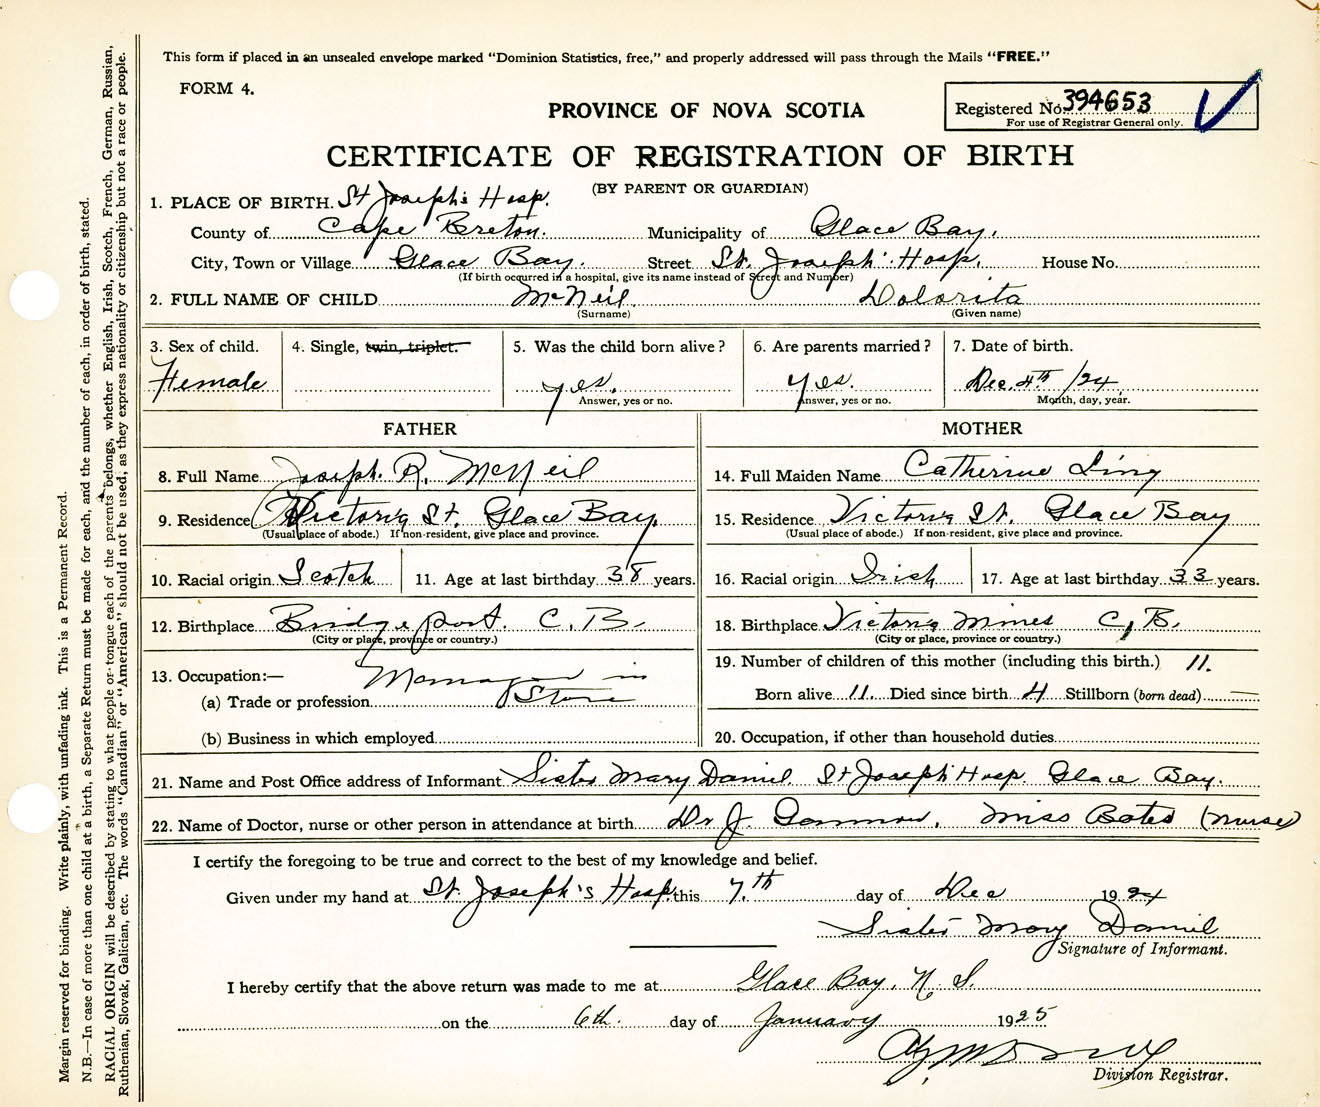 This form if placed in an unsealed envelope marked "Dominion Statistics, free," and properly addressed will pass through the Mails "FREE."
FORM 4.
Registered No. 394653
For use of Registrar General only.
PROVINCE OF NOVA SCOTIA
CERTIFICATE OF REGISTRATION OF BIRTH
(BY PARENT OR GUARDIAN)
1. PLACE OF BIRTH. St Joseph's Hosp.
County of Cape Breton. Municipality of Glace Bay.
City, Town or Village Glace Bay. Street St. Joseph' Hosp. House No.
(If birth occurred in a hospital, give its name instead of Street and Number)
2. FULL NAME OF CHILD McNeil Dolorita
(Surname) (Given name)
3. Sex of child. 4. Single, twin, triplet. 5. Was the child born alive? 6. Are parents married? 7. Date of birth.
Female yes. yes. Dec. 4th /24
Answer, yes or no. Answer, yes or no. Month, day, year.
FATHER MOTHER
8. Full Name Joseph. R. McNeil 14. Full Maiden Name Catherine
9. Residence Victoria St. Glace Bay. 15. Residence Victoria St. Glace Bay
(Usual place of abode.) If non-resident, give place and province. (Usual place of abode.) If non-resident, give place and province.
10. Racial origin Scotch 11. Age at last birthday 38 years. 16. Racial origin Irish 17. Age at last birthday 33 years.
12. Birthplace Bridgeport. C. B. 18. Birthplace Victoria Mines C. B.
(City or place, province or country.) (City or place, province or country.)
13. Occupation:— Manager in 19. Number of children of this mother (including this birth.) 11.
(a) Trade or profession Store Born alive 11. Died since birth 4 Stillborn (born dead) —
(b) Business in which employed 20. Occupation, if other than household duties
21. Name and Post Office address of Informant Sister Mary Daniel. St Joseph' Hosp. Glace Bay.
22. Name of Doctor, nurse or other person in attendance at birth Dr J. Miss Bates (nurse)
I certify the foregoing to be true and correct to the best of my knowledge and belief.
Given under my hand at St. Joseph's Hosp. this 7th day of Dec 1924
Sister Mary Daniel
Signature of Informant.
I hereby certify that the above return was made to me at Glace Bay, N. S.
on the 6th. day of January 1925
Division Registrar.
Margin reserved for binding. Write plainly, with unfading ink. This is a Permanent Record.
N.B.—In case of more than one child at a birth, a Separate Return must be made for each, and the number of each, in order of birth, stated.
RACIAL ORIGIN will be described by stating to what people or tongue each of the parents belongs, whether English, Irish, Scotch, French, German, Russian,
Ruthenian, Slovak, Galician, etc. The words "Canadian" or "American" should not be used, as they express nationality or citizenship but not a race or people.